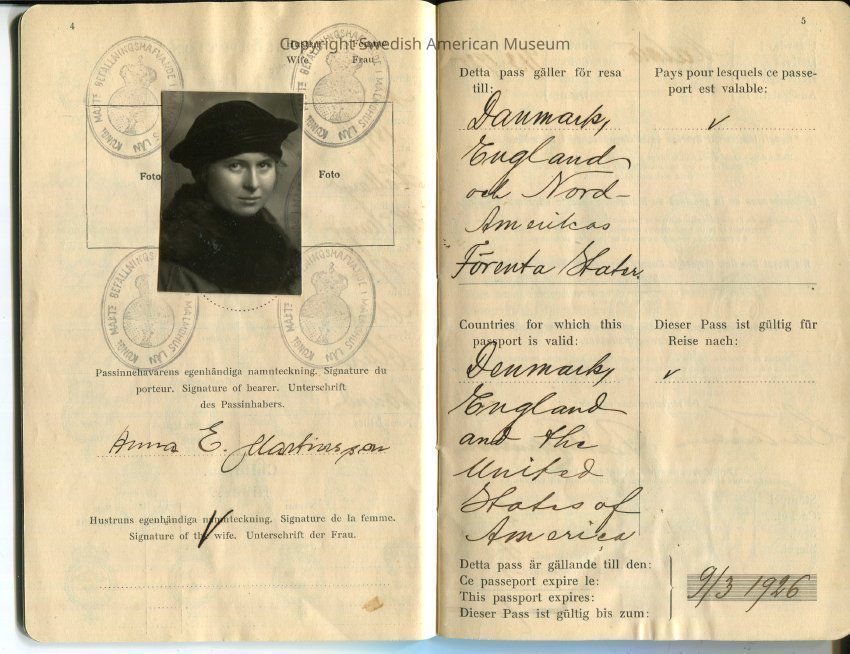 4
Copyright Swedish American Museum
Wife. Frau.
KUNGL. MAJTS BEFALLNINGSHAFVANDE I MALMÖHUS LÄN
KUNGL. MAJTS BEFALLNINGSHAFVANDE I MALMÖHUS LÄN
Foto
Foto
KUNGL. MAJTS BEFALLNINGSHAFVANDE I MALMÖHUS LÄN
KUNGL. MAJTS BEFALLNINGSHAFVANDE I MALMÖHUS LÄN
Passinnehavarens egenhändiga namnteckning. Signature du
porteur. Signature of bearer. Unterschrift
des Passinhabers.
Anna E. Martinsson
Hustruns egenhändiga namnteckning. Signature de la femme.
Signature of the wife. Unterschrift der Frau.
5
Detta pass gäller för resa
till:
Danmark,
England
och Nord-
Amerikas
Förenta Stater.
Pays pour lesquels ce passe-
port est valable:
Countries for which this
passport is valid:
Denmark,
England
and the
United
States of
America
Dieser Pass ist gültig für
Reise nach:
Detta pass är gällande till den:
Ce passeport expire le:
This passport expires:
Dieser Pass ist gültig bis zum:
9/3 1926